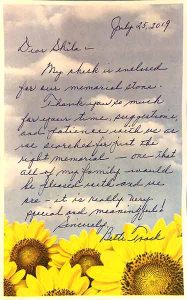 July 25, 2019
Dear Shila –
My check is enclosed
for our memorial stone.
Thank you so much
for your time, suggestions,
and patience with us as
we searched for just the
right memorial – one that
all of my family would
be pleased with and we
are – it is really very
special and meaningful!
Sincerely,
Bette